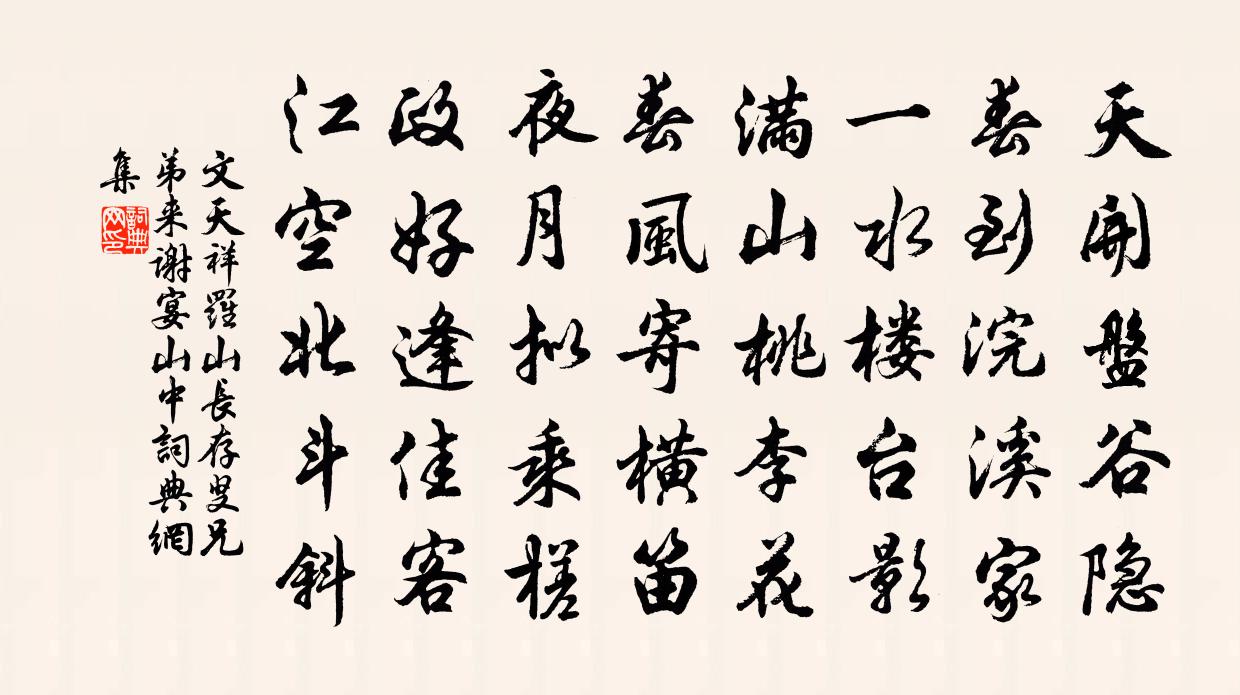 天開盤谷隐
春到浣溪家
一水楼台影
满山桃李花
春風寄横笛
夜月拟乘槎
政好逢佳客
江空北斗斜
文天祥羅山長存叟兄
弟来谢宴山中詞典網
集
詞典
网印